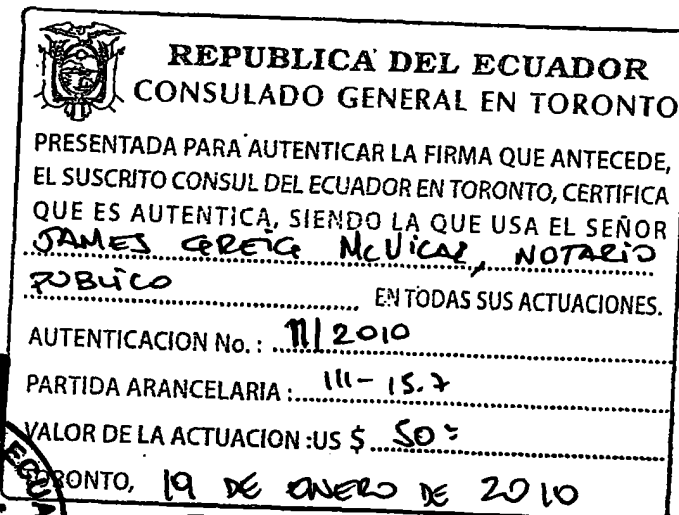 REPUBLICA DEL ECUADOR
CONSULADO GENERAL EN TORONTO
PRESENTADA PARA AUTENTICAR LA FIRMA QUE ANTECEDE,
EL SUSCRITO CONSUL DEL ECUADOR EN TORONTO, CERTIFICA
QUE ES AUTENTICA, SIENDO LA QUE USA EL SEÑOR
JAMES GREIG McVICAR, NOTARIO
PUBLICO EN TODAS SUS ACTUACIONES.
AUTENTICACION No.: 11/2010
PARTIDA ARANCELARIA: III-15.7
VALOR DE LA ACTUACION :US $ 50=
TORONTO, 19 DE ENERO DE 2010
ECUA